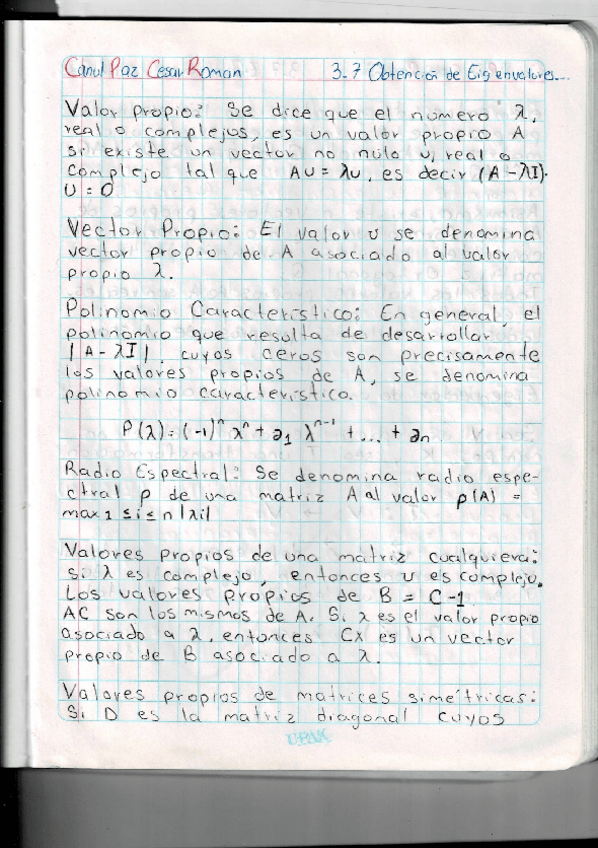 Canul Paz Cesar Roman 3.7 Obtencion de Eigenvalores...
Valor propio: Se dice que el numero λ,
real o complejos, es un valor propio A
si existe un vector no nulo u, real o
complejo tal que Au = λu, es decir (A - λI)·
U = 0
Vector Propio: El valor u se denomina
vector propio de A asociado al valor
propio λ.
Polinomio Característico: En general, el
polinomio que resulta de desarrollar
|A - λI|, cuyos ceros son precisamente
los valores propios de A, se denomina
polinomio característico.
P(λ) = (-1)ⁿ λⁿ + a₁ λⁿ⁻¹ + ... + an
Radio Espectral: Se denomina radio espe-
ctral ρ de una matriz A al valor ρ(A) =
max 1 ≤ i ≤ n |λi|
Valores propios de una matriz cualquiera:
si λ es complejo, entonces u es complejo.
Los valores propios de B = C-1
AC son los mismos de A. Si x es el valor propio
asociado a λ, entonces Cx es un vector
propio de B asociado a λ.
Valores propios de matrices simétricas:
Si D es la matriz diagonal cuyos